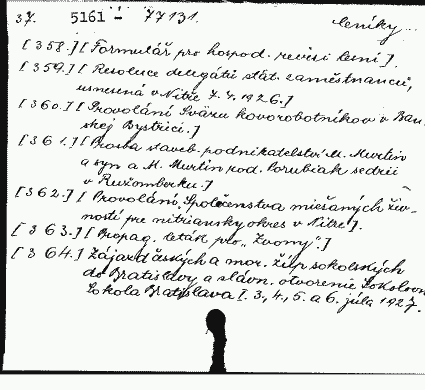 37. 5161 - 77131. ceníky...
[358.] [Formulář pro hospod. revisi lesní].
[359.] [Resoluce delegátů stát. zaměstnanců,
usnesená v Nitře 7.4.1926.]
[360.] [Provolání Sväzu kovorobotníkov v Ban-
skej Bystrici.]
[361.] [Prosba staveb. podnikatelství M. Murtin
a syn a M. Murtin pod. Porubiak sedrii
v Ružomberku.]
[362.] [Provolání Společenstva miešaných živ-
ností pre nitriansky okres v Nitre].
[363.] [Propag. leták pro „Zvony".]
[364.] Zájezd českých a mor. žup sokolských
do Bratislavy a slávn. otvorenie Sokolovne
Sokola Bratislava I. 3., 4., 5. a 6. júla 1927.